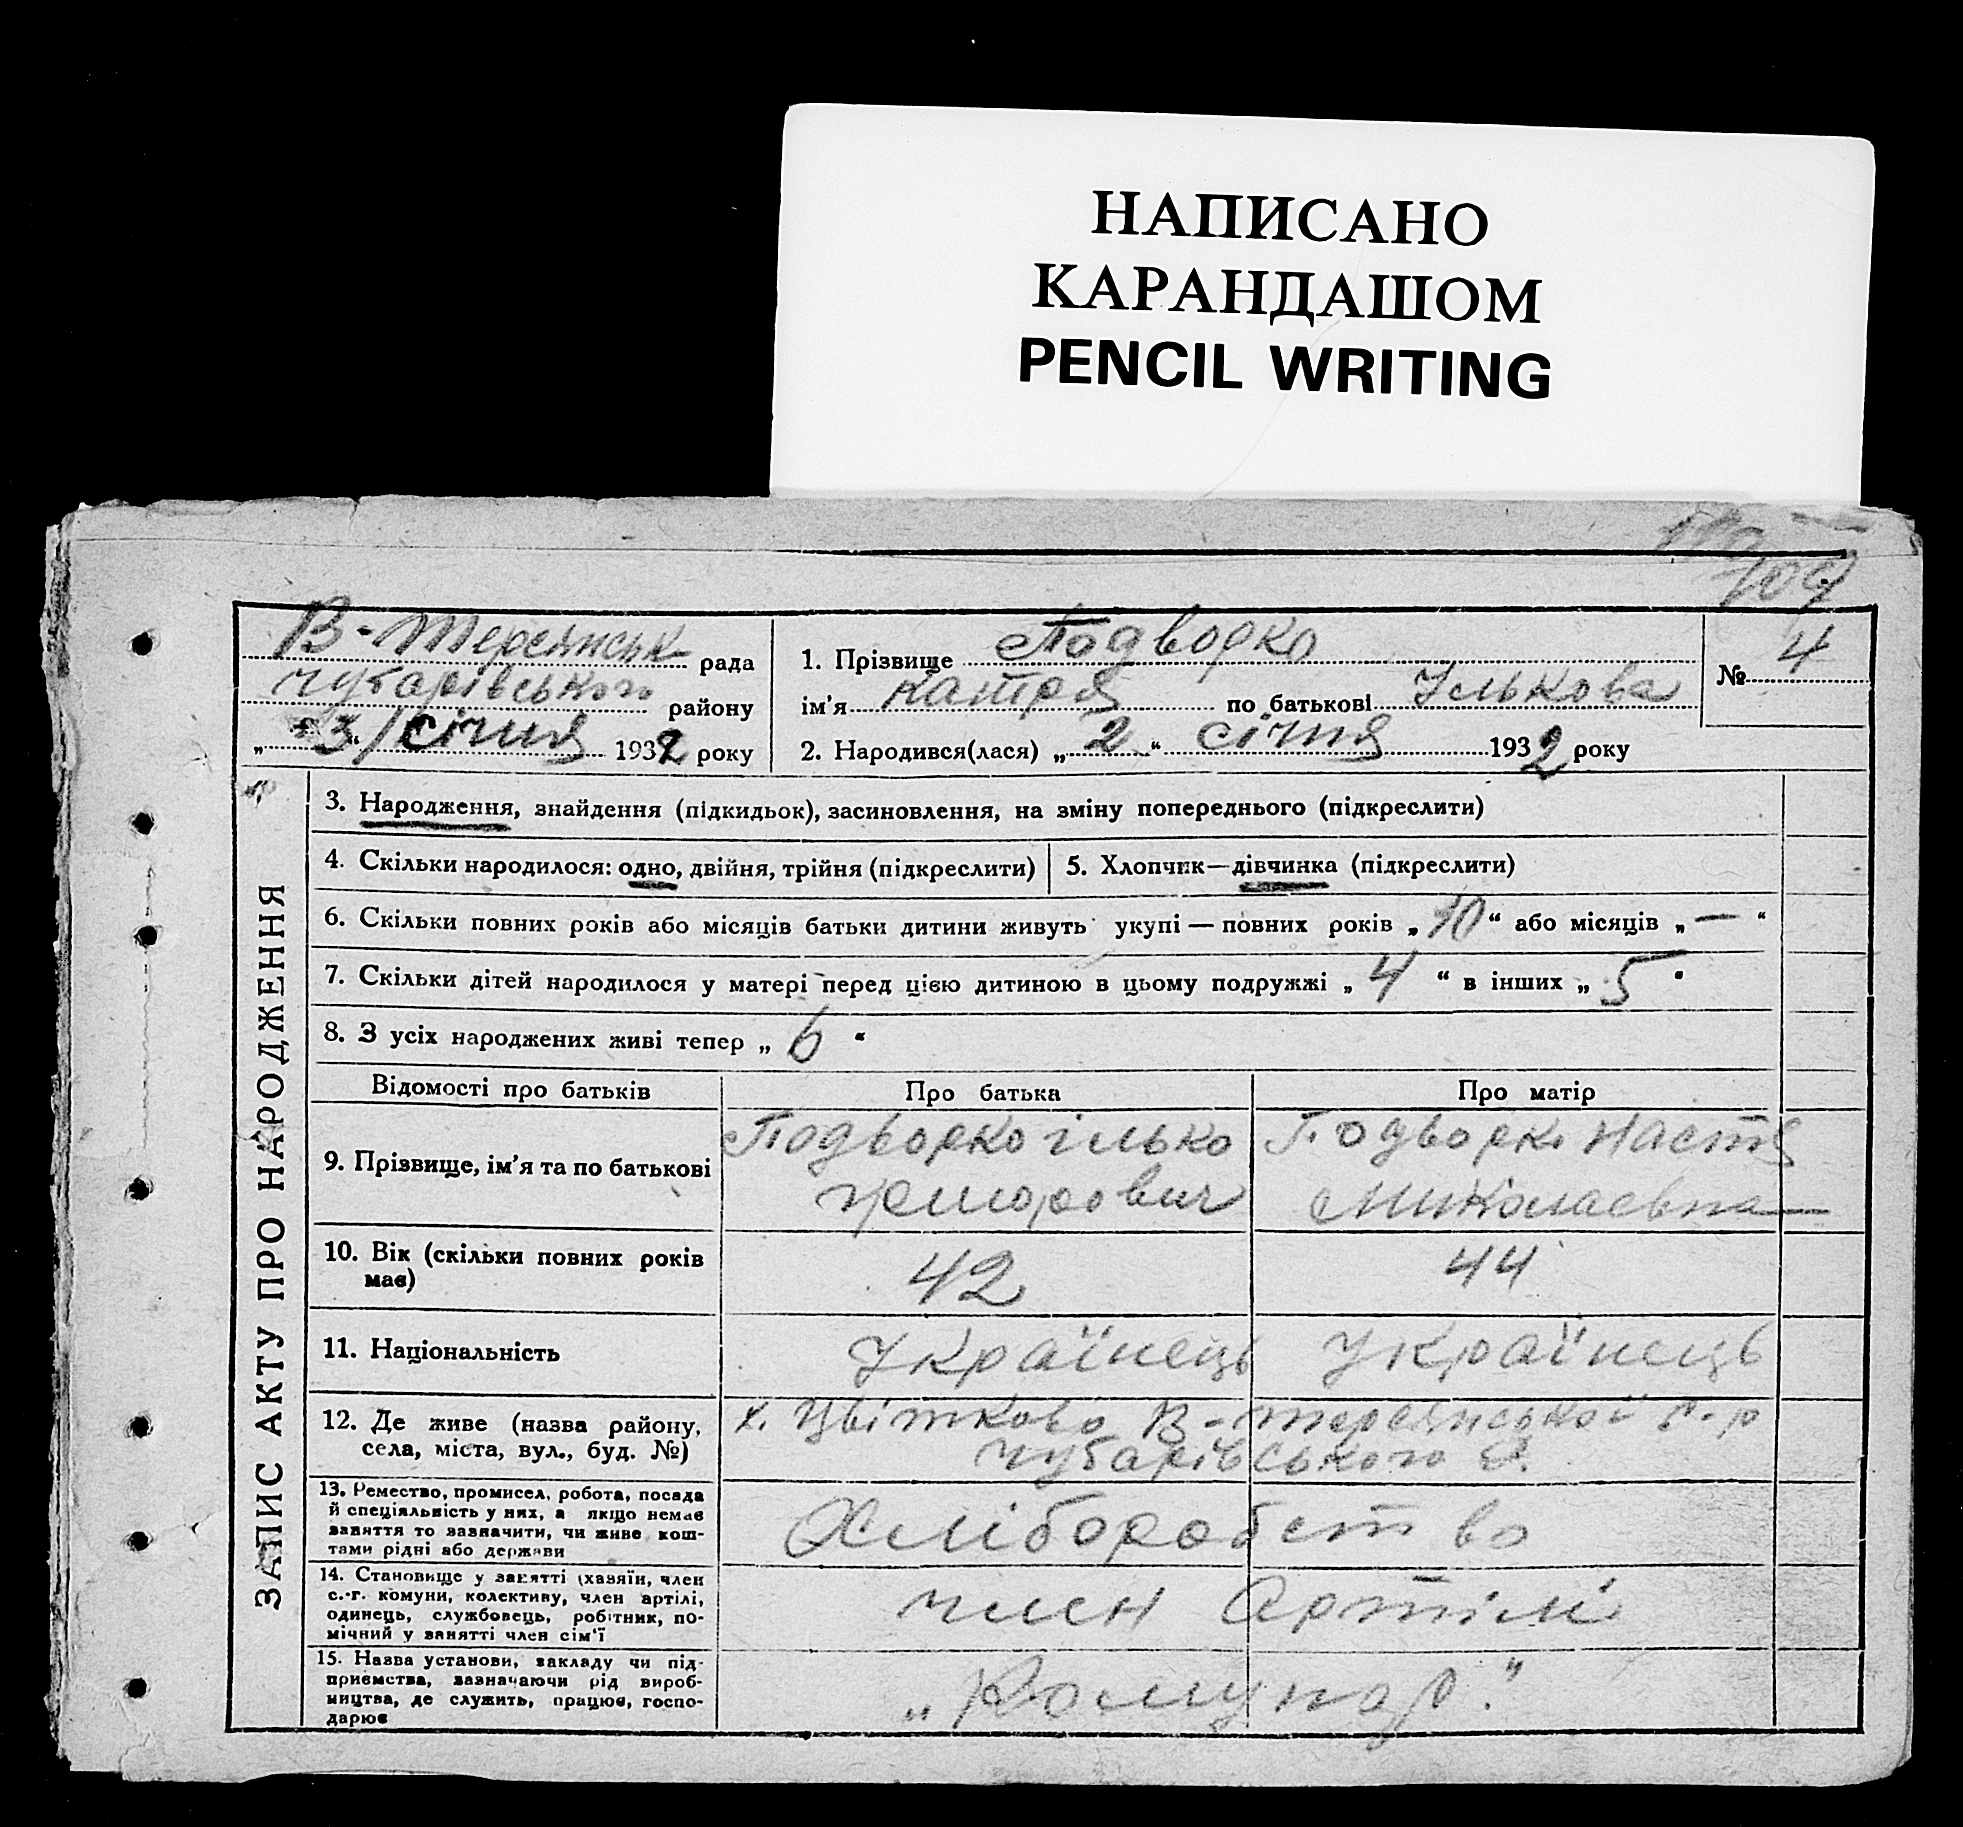 НАПИСАНО
КАРАНДАШОМ
PENCIL WRITING
109
В-Терсянськ рада
Чубарівського району
„ 3 “ січня 1932 року
1. Прізвище Подворко
ім’я Катря по батькові Ількова
№ 4
2. Народився(лася) „ 2 “ січня 1932 року
ЗАПИС АКТУ ПРО НАРОДЖЕННЯ
3. Народження, знайдення (підкидьок), засиновлення, на зміну попереднього (підкреслити)
4. Скільки народилося: одно, двійня, трійня (підкреслити)
5. Хлопчик—дівчинка (підкреслити)
6. Скільки повних років або місяців батьки дитини живуть укупі — повних років „ 10 “ або місяців „ — “
7. Скільки дітей народилося у матері перед цією дитиною в цьому подружжі „ 4 “ в інших „ 5 “
8. З усіх народжених живі тепер „ 6 “
Відомості про батьків Про батька Про матір
9. Прізвище, ім’я та по батькові
Подворко Ілько
Подворко Настя
Миколаевна
10. Вік (скільки повних років
має)
42
44
11. Національність
Українець
Українець
12. Де живе (назва району,
села, міста, вул., буд. №)
х. Цвіткова В-Терсянської с-р
Чубарівського р.
13. Ремество, промисел, робота, посада
й спеціяльність у них, а якщо немає
заняття то зазначити, чи живе кош-
тами рідні або держави
Хліборобство
14. Становище у занятті (хазяїн, член
с.-г. комуни, колективу, член артілі,
одинець, службовець, робітник, по-
мічний у занятті член сім’ї
член Артілі
15. Назва установи, закладу чи під-
приємства, зазначаючи рід вироб-
ництва, де служить, працює, госпо-
дарює
„Комунар.“